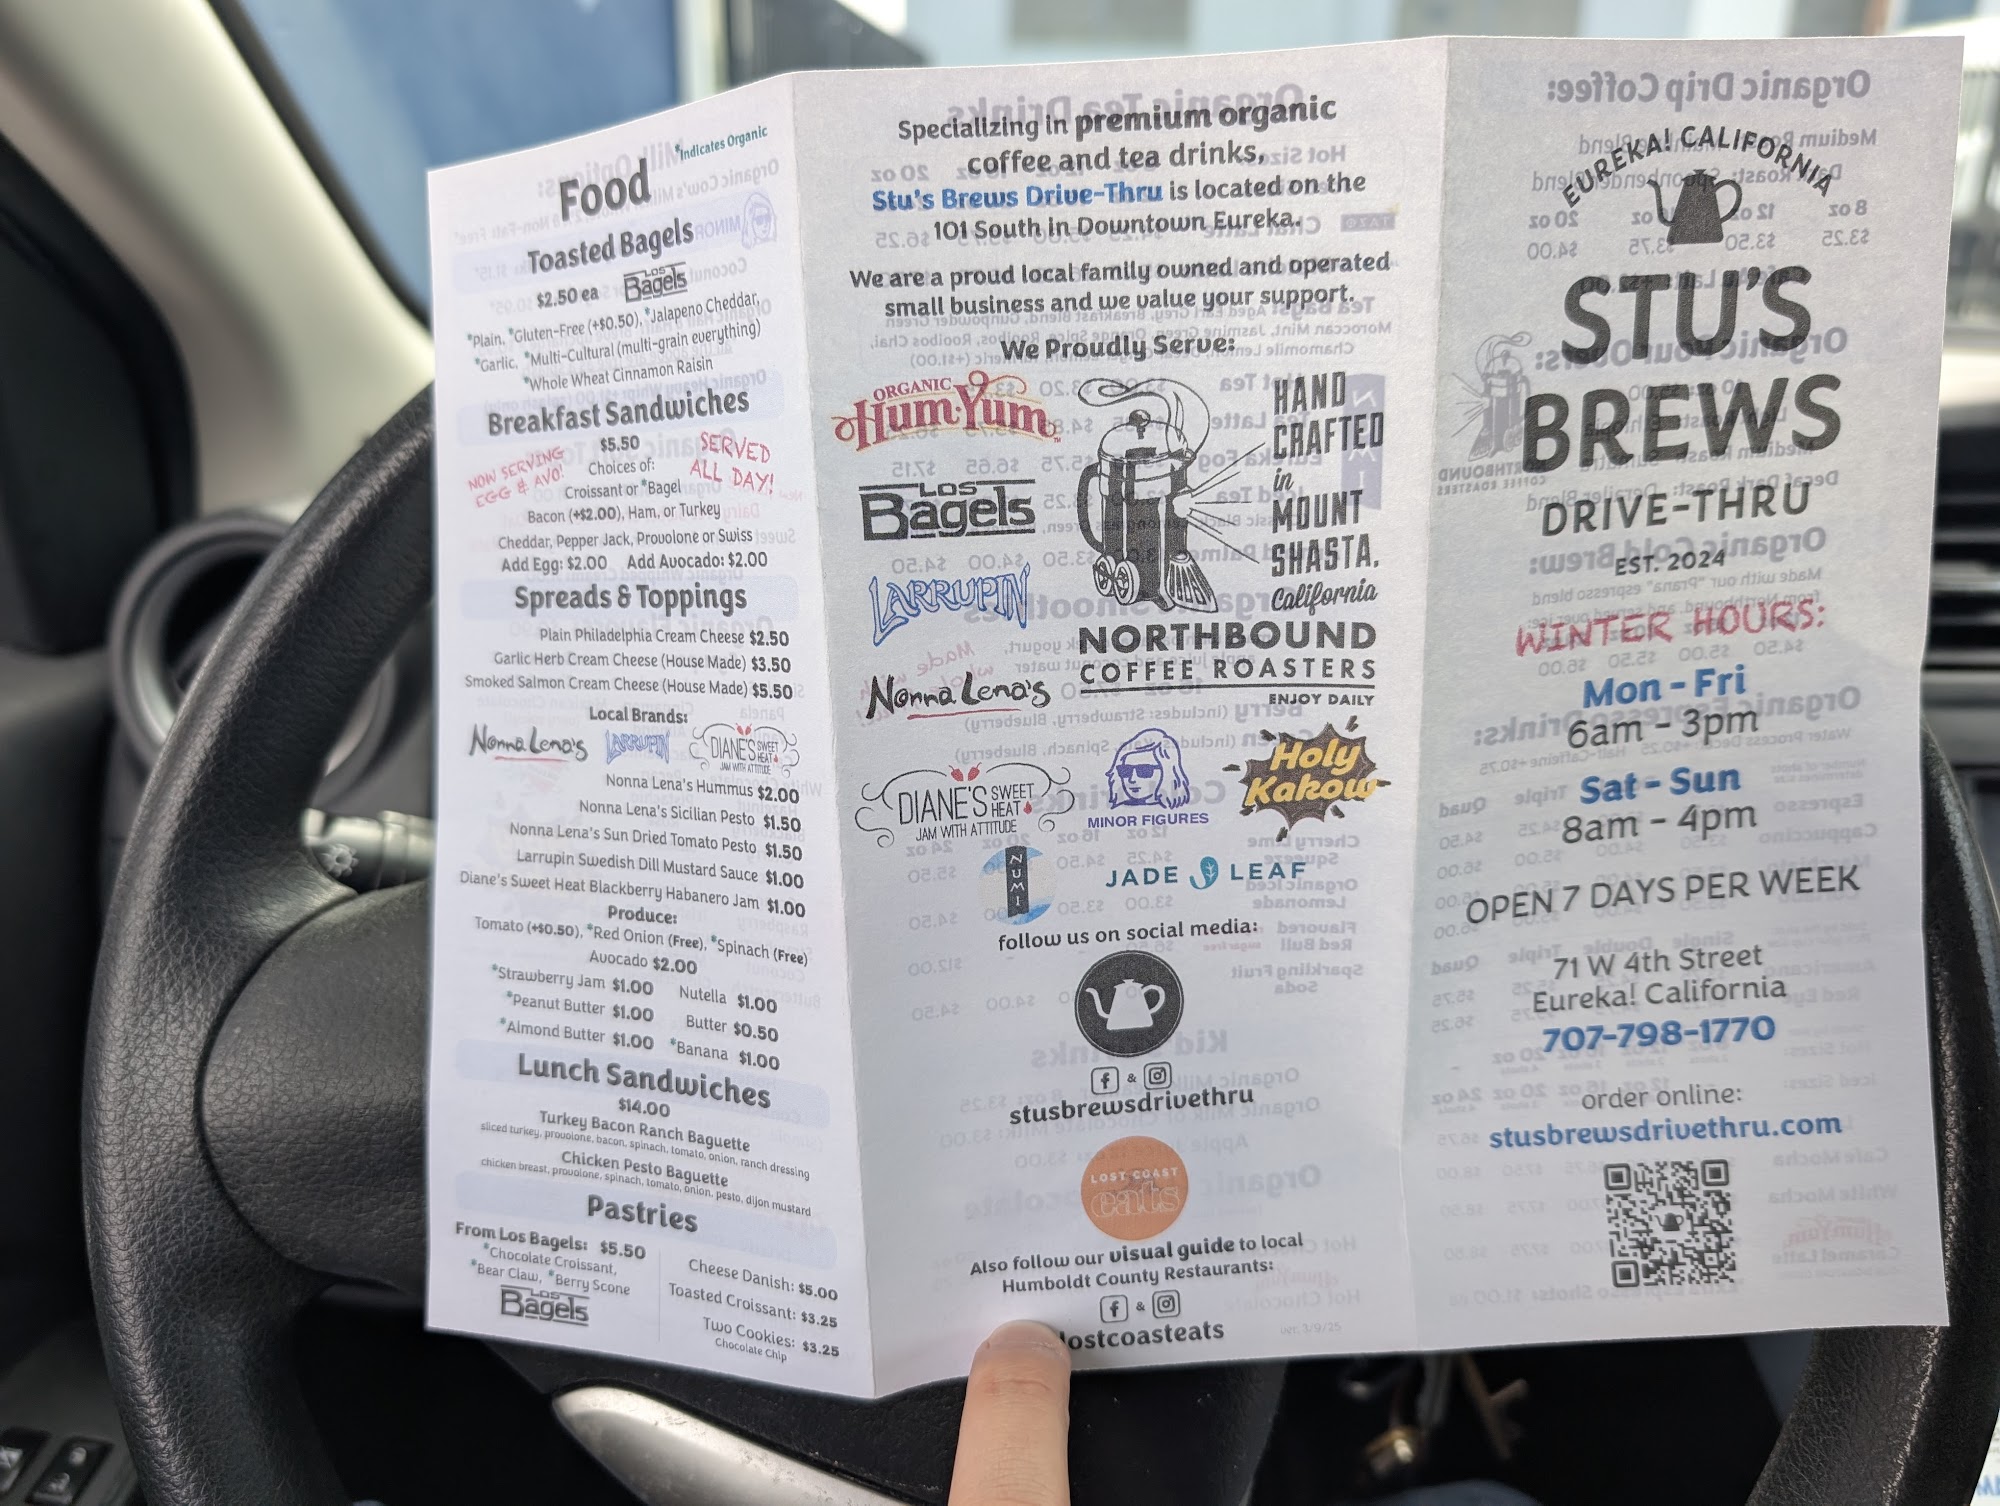 *Indicates Organic
Food
Toasted Bagels
$2.50 ea Los Bagels
*Plain, *Gluten-Free (+$0.50), *Jalapeno Cheddar,
*Garlic, *Multi-Cultural (multi-grain everything)
*Whole Wheat Cinnamon Raisin
Breakfast Sandwiches
$5.50
NOW SERVING
EGG & AVO!
SERVED
ALL DAY!
Choices of:
Croissant or *Bagel
Bacon (+$2.00), Ham, or Turkey
Cheddar, Pepper Jack, Provolone or Swiss
Add Egg: $2.00 Add Avocado: $2.00
Spreads & Toppings
Plain Philadelphia Cream Cheese $2.50
Garlic Herb Cream Cheese (House Made) $3.50
Smoked Salmon Cream Cheese (House Made) $5.50
Local Brands:
Nonna Lena's LARRUPIN DIANE'S SWEET HEAT
JAM WITH ATTITUDE
Nonna Lena's Hummus $2.00
Nonna Lena's Sicilian Pesto $1.50
Nonna Lena's Sun Dried Tomato Pesto $1.50
Larrupin Swedish Dill Mustard Sauce $1.00
Diane's Sweet Heat Blackberry Habanero Jam $1.00
Produce:
Tomato (+$0.50), *Red Onion (Free), *Spinach (Free)
Avocado $2.00
*Strawberry Jam $1.00 Nutella $1.00
*Peanut Butter $1.00 Butter $0.50
*Almond Butter $1.00 *Banana $1.00
Lunch Sandwiches
$14.00
Turkey Bacon Ranch Baguette
sliced turkey, provolone, bacon, spinach, tomato, onion, ranch dressing
Chicken Pesto Baguette
chicken breast, provolone, spinach, tomato, onion, pesto, dijon mustard
Pastries
From Los Bagels: $5.50
*Chocolate Croissant,
*Bear Claw, *Berry Scone
Los Bagels
Cheese Danish: $5.00
Toasted Croissant: $3.25
Two Cookies: $3.25
Chocolate Chip
Specializing in premium organic
coffee and tea drinks,
Stu's Brews Drive-Thru is located on the
101 South in Downtown Eureka.
We are a proud local family owned and operated
small business and we value your support.
We Proudly Serve:
ORGANIC
Hum·Yum™
LOS
Bagels
LARRUPIN
Nonna Lena's
HAND
CRAFTED
in
MOUNT
SHASTA,
California
NORTHBOUND
COFFEE ROASTERS
ENJOY DAILY
DIANE'S SWEET HEAT
JAM WITH ATTITUDE
MINOR FIGURES
Holy
Kakow
NUMI
JADE LEAF
follow us on social media:
f & 
stusbrewsdrivethru
LOST COAST
eats
Also follow our visual guide to local
Humboldt County Restaurants:
f & 
lostcoasteats
ver. 3/9/25
EUREKA! CALIFORNIA
STU'S
BREWS
DRIVE-THRU
EST. 2024
WINTER HOURS:
Mon - Fri
6am - 3pm
Sat - Sun
8am - 4pm
OPEN 7 DAYS PER WEEK
71 W 4th Street
Eureka! California
707-798-1770
order online:
stusbrewsdrivethru.com